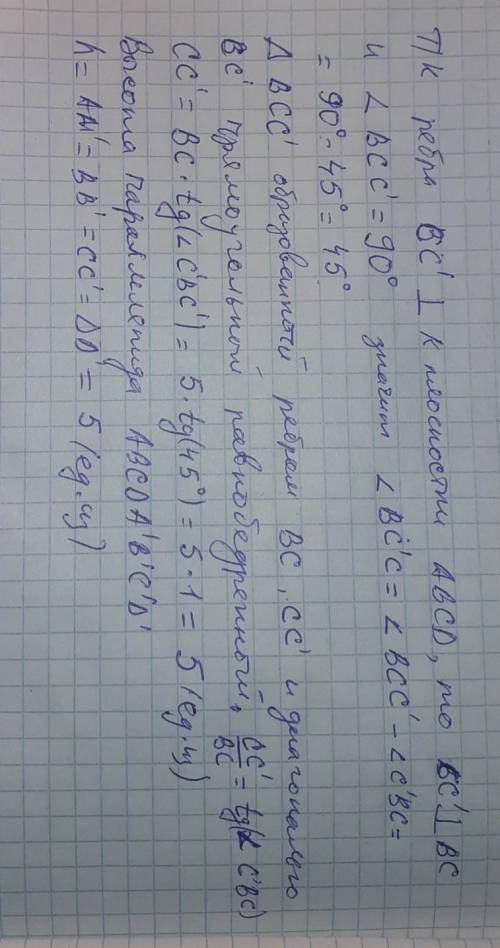 Т/к ребра BC' ⊥ к плоскости ABCD, то BC'⊥ BC
и ∠ BCC' = 90° значит ∠ BC'C = ∠ BCC' - ∠C'BC =
= 90° - 45° = 45°
Δ BCC' образованный ребрам BC, CC' и диагональго
BC' прямоугольный равнобедренный, CC'/BC = tg(∠ C'BC)
CC' = BC · tg(∠ C'BC') = 5 · tg(45°) = 5 · 1 = 5 (ед. из)
Высота параллелепида ABCDA'B'C'D'
h = AA' = BB' = CC' = DD' = 5 (ед. из)